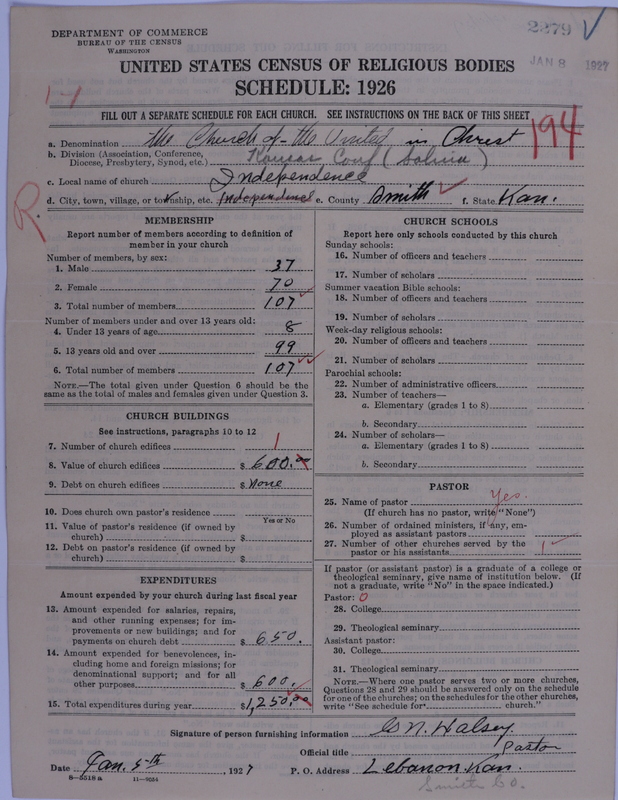 2279
JAN 8 1927
DEPARTMENT OF COMMERCE
BUREAU OF THE CENSUS
WASHINGTON
UNITED STATES CENSUS OF RELIGIOUS BODIES
SCHEDULE: 1926
1-1
FILL OUT A SEPARATE SCHEDULE FOR EACH CHURCH. SEE INSTRUCTIONS ON THE BACK OF THIS SHEET
194
a. Denomination The Church of the United in Christ
b. Division (Association, Conference, Diocese, Presbytery, Synod, etc.) Kansas Conf (Salina)
c. Local name of church Independence
d. City, town, village, or township, etc. Independence e. County Smith f. State Kan.
R.
MEMBERSHIP
Report number of members according to definition of member in your church
Number of members, by sex:
1. Male 37
2. Female 70
3. Total number of members 107
Number of members under and over 13 years old:
4. Under 13 years of age 8
5. 13 years old and over 99
6. Total number of members 107
NOTE.—The total given under Question 6 should be the same as the total of males and females given under Question 3.
CHURCH BUILDINGS
See instructions, paragraphs 10 to 12
7. Number of church edifices 1
8. Value of church edifices $ 600.00
9. Debt on church edifices $ None
10. Does church own pastor's residence
Yes or No
11. Value of pastor's residence (if owned by church) $
12. Debt on pastor's residence (if owned by church) $
EXPENDITURES
Amount expended by your church during last fiscal year
13. Amount expended for salaries, repairs, and other running expenses; for improvements or new buildings; and for payments on church debt $ 650.
14. Amount expended for benevolences, including home and foreign missions; for denominational support; and for all other purposes $ 600.
15. Total expenditures during year $1,250.00
CHURCH SCHOOLS
Report here only schools conducted by this church
Sunday schools:
16. Number of officers and teachers
17. Number of scholars
Summer vacation Bible schools:
18. Number of officers and teachers
19. Number of scholars
Week-day religious schools:
20. Number of officers and teachers
21. Number of scholars
Parochial schools:
22. Number of administrative officers
23. Number of teachers—
a. Elementary (grades 1 to 8)
b. Secondary
24. Number of scholars—
a. Elementary (grades 1 to 8)
b. Secondary
PASTOR
25. Name of pastor Yes.
(If church has no pastor, write "None")
26. Number of ordained ministers, if any, employed as assistant pastors
27. Number of other churches served by the pastor or his assistants 1
If pastor (or assistant pastor) is a graduate of a college or theological seminary, give name of institution below. (If not a graduate, write "No" in the space indicated.)
Pastor: 0
28. College
29. Theological seminary
Assistant pastor:
30. College
31. Theological seminary
NOTE.—Where one pastor serves two or more churches, Questions 28 and 29 should be answered only on the schedule for one of the churches; on the schedules for the other churches, write "See schedule for church."
Signature of person furnishing information G N. Halsey
Official title Pastor
Date Jan. 5th, 1927 P. O. Address Lebanon Kan.
Smith Co.
8-5518 a 11-9034